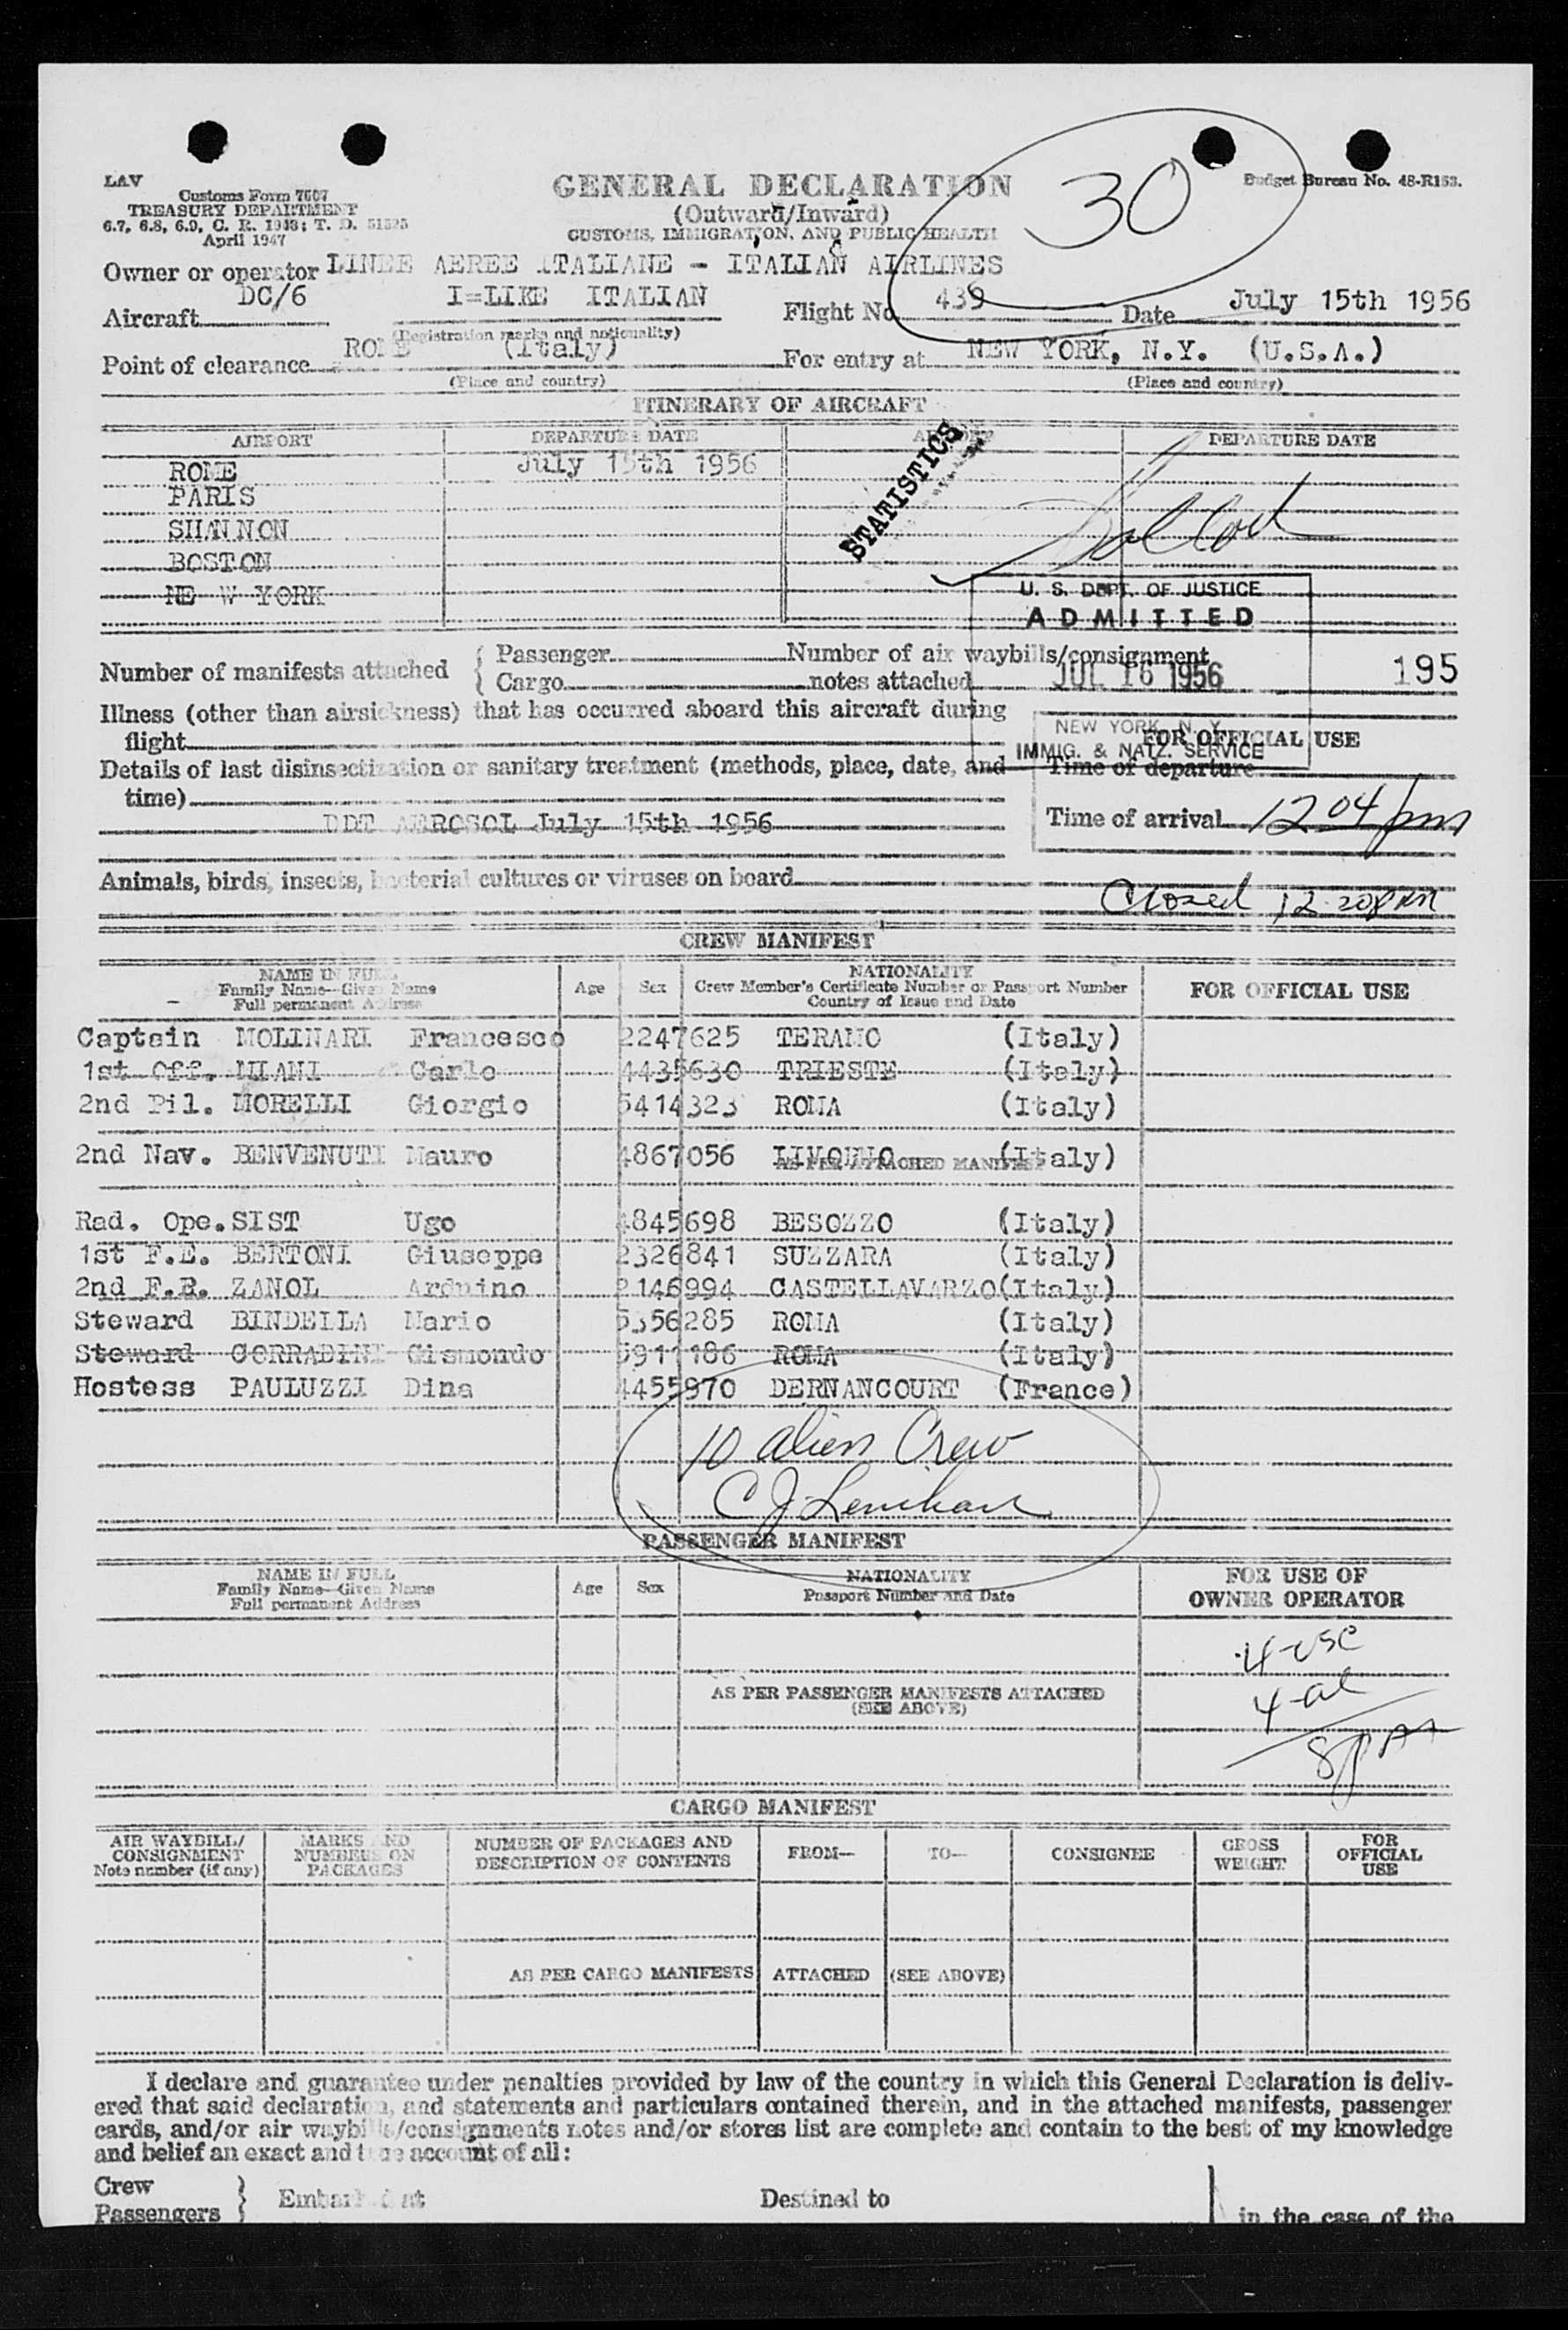 LAV
Customs Form 7507
TREASURY DEPARTMENT
6.7, 6.8, 6.9, C. R. 1943; T. D. 51525
April 1947
GENERAL DECLARATION
(Outward/Inward)
CUSTOMS, IMMIGRATION, AND PUBLIC HEALTH
30
Budget Bureau No. 48-R153.
Owner or operator LINEE AEREE ITALIANE - ITALIAN AIRLINES
Aircraft DC/6 I=LIKE ITALIAN Flight No. 439 Date July 15th 1956
(Registration marks and nationality)
Point of clearance ROME (Italy) For entry at NEW YORK, N.Y. (U.S.A.)
(Place and country) (Place and country)
ITINERARY OF AIRCRAFT
AIRPORT DEPARTURE DATE AIRPORT DEPARTURE DATE
ROME July 15th 1956
PARIS
SHANNON
BOSTON
NE W YORK
STATISTICS
U. S. DEPT. OF JUSTICE
ADMITTED
JUL 16 1956
NEW YORK, N. Y.
IMMIG. & NATZ. SERVICE
Number of manifests attached { Passenger Number of air waybills/consignment 195
Cargo notes attached
Illness (other than airsickness) that has occurred aboard this aircraft during
flight
FOR OFFICIAL USE
Details of last disinsectization or sanitary treatment (methods, place, date, and
time)
Time of departure
DDT AEROSOL July 15th 1956
Time of arrival 12 04 pm
Animals, birds, insects, bacterial cultures or viruses on board
Closed 12 20 PM
CREW MANIFEST
NAME IN FULL
Family Name—Given Name
Full permanent Address
Age
Sex
NATIONALITY
Crew Member's Certificate Number or Passport Number
Country of Issue and Date
FOR OFFICIAL USE
Captain MOLINARI Francesco 2247625 TERAMO (Italy)
1st Off. MIANI Carlo 4435630 TRIESTE (Italy)
2nd Pil. MORELLI Giorgio 5414323 ROMA (Italy)
2nd Nav. BENVENUTI Mauro 4867056 LIVORNO (Italy)
AS PER ATTACHED MANIFEST
Rad. Ope. SIST Ugo 4845698 BESOZZO (Italy)
1st F.E. BERTONI Giuseppe 2326841 SUZZARA (Italy)
2nd F.E. ZANOL Arduino 2146994 CASTELLAVARZO(Italy)
Steward BINDELLA Mario 5356285 ROMA (Italy)
Steward CORRADINI Gismondo 5911186 ROMA (Italy)
Hostess PAULUZZI Dina 4455970 DERNANCOURT (France)
10 alien Crew
C J Lenihan
PASSENGER MANIFEST
NAME IN FULL
Family Name—Given Name
Full permanent Address
Age
Sex
NATIONALITY
Passport Number and Date
FOR USE OF
OWNER OPERATOR
4-USC
AS PER PASSENGER MANIFESTS ATTACHED
(SEE ABOVE)
4-al
CARGO MANIFEST
AIR WAYBILL/
CONSIGNMENT
Note number (if any)
MARKS AND
NUMBERS ON
PACKAGES
NUMBER OF PACKAGES AND
DESCRIPTION OF CONTENTS
FROM—
TO—
CONSIGNEE
GROSS
WEIGHT
FOR
OFFICIAL
USE
AS PER CARGO MANIFESTS ATTACHED (SEE ABOVE)
I declare and guarantee under penalties provided by law of the country in which this General Declaration is deliv-
ered that said declaration, and statements and particulars contained therein, and in the attached manifests, passenger
cards, and/or air waybills/consignments notes and/or stores list are complete and contain to the best of my knowledge
and belief an exact and true account of all:
Crew
Passengers } Embarked at Destined to
in the case of the